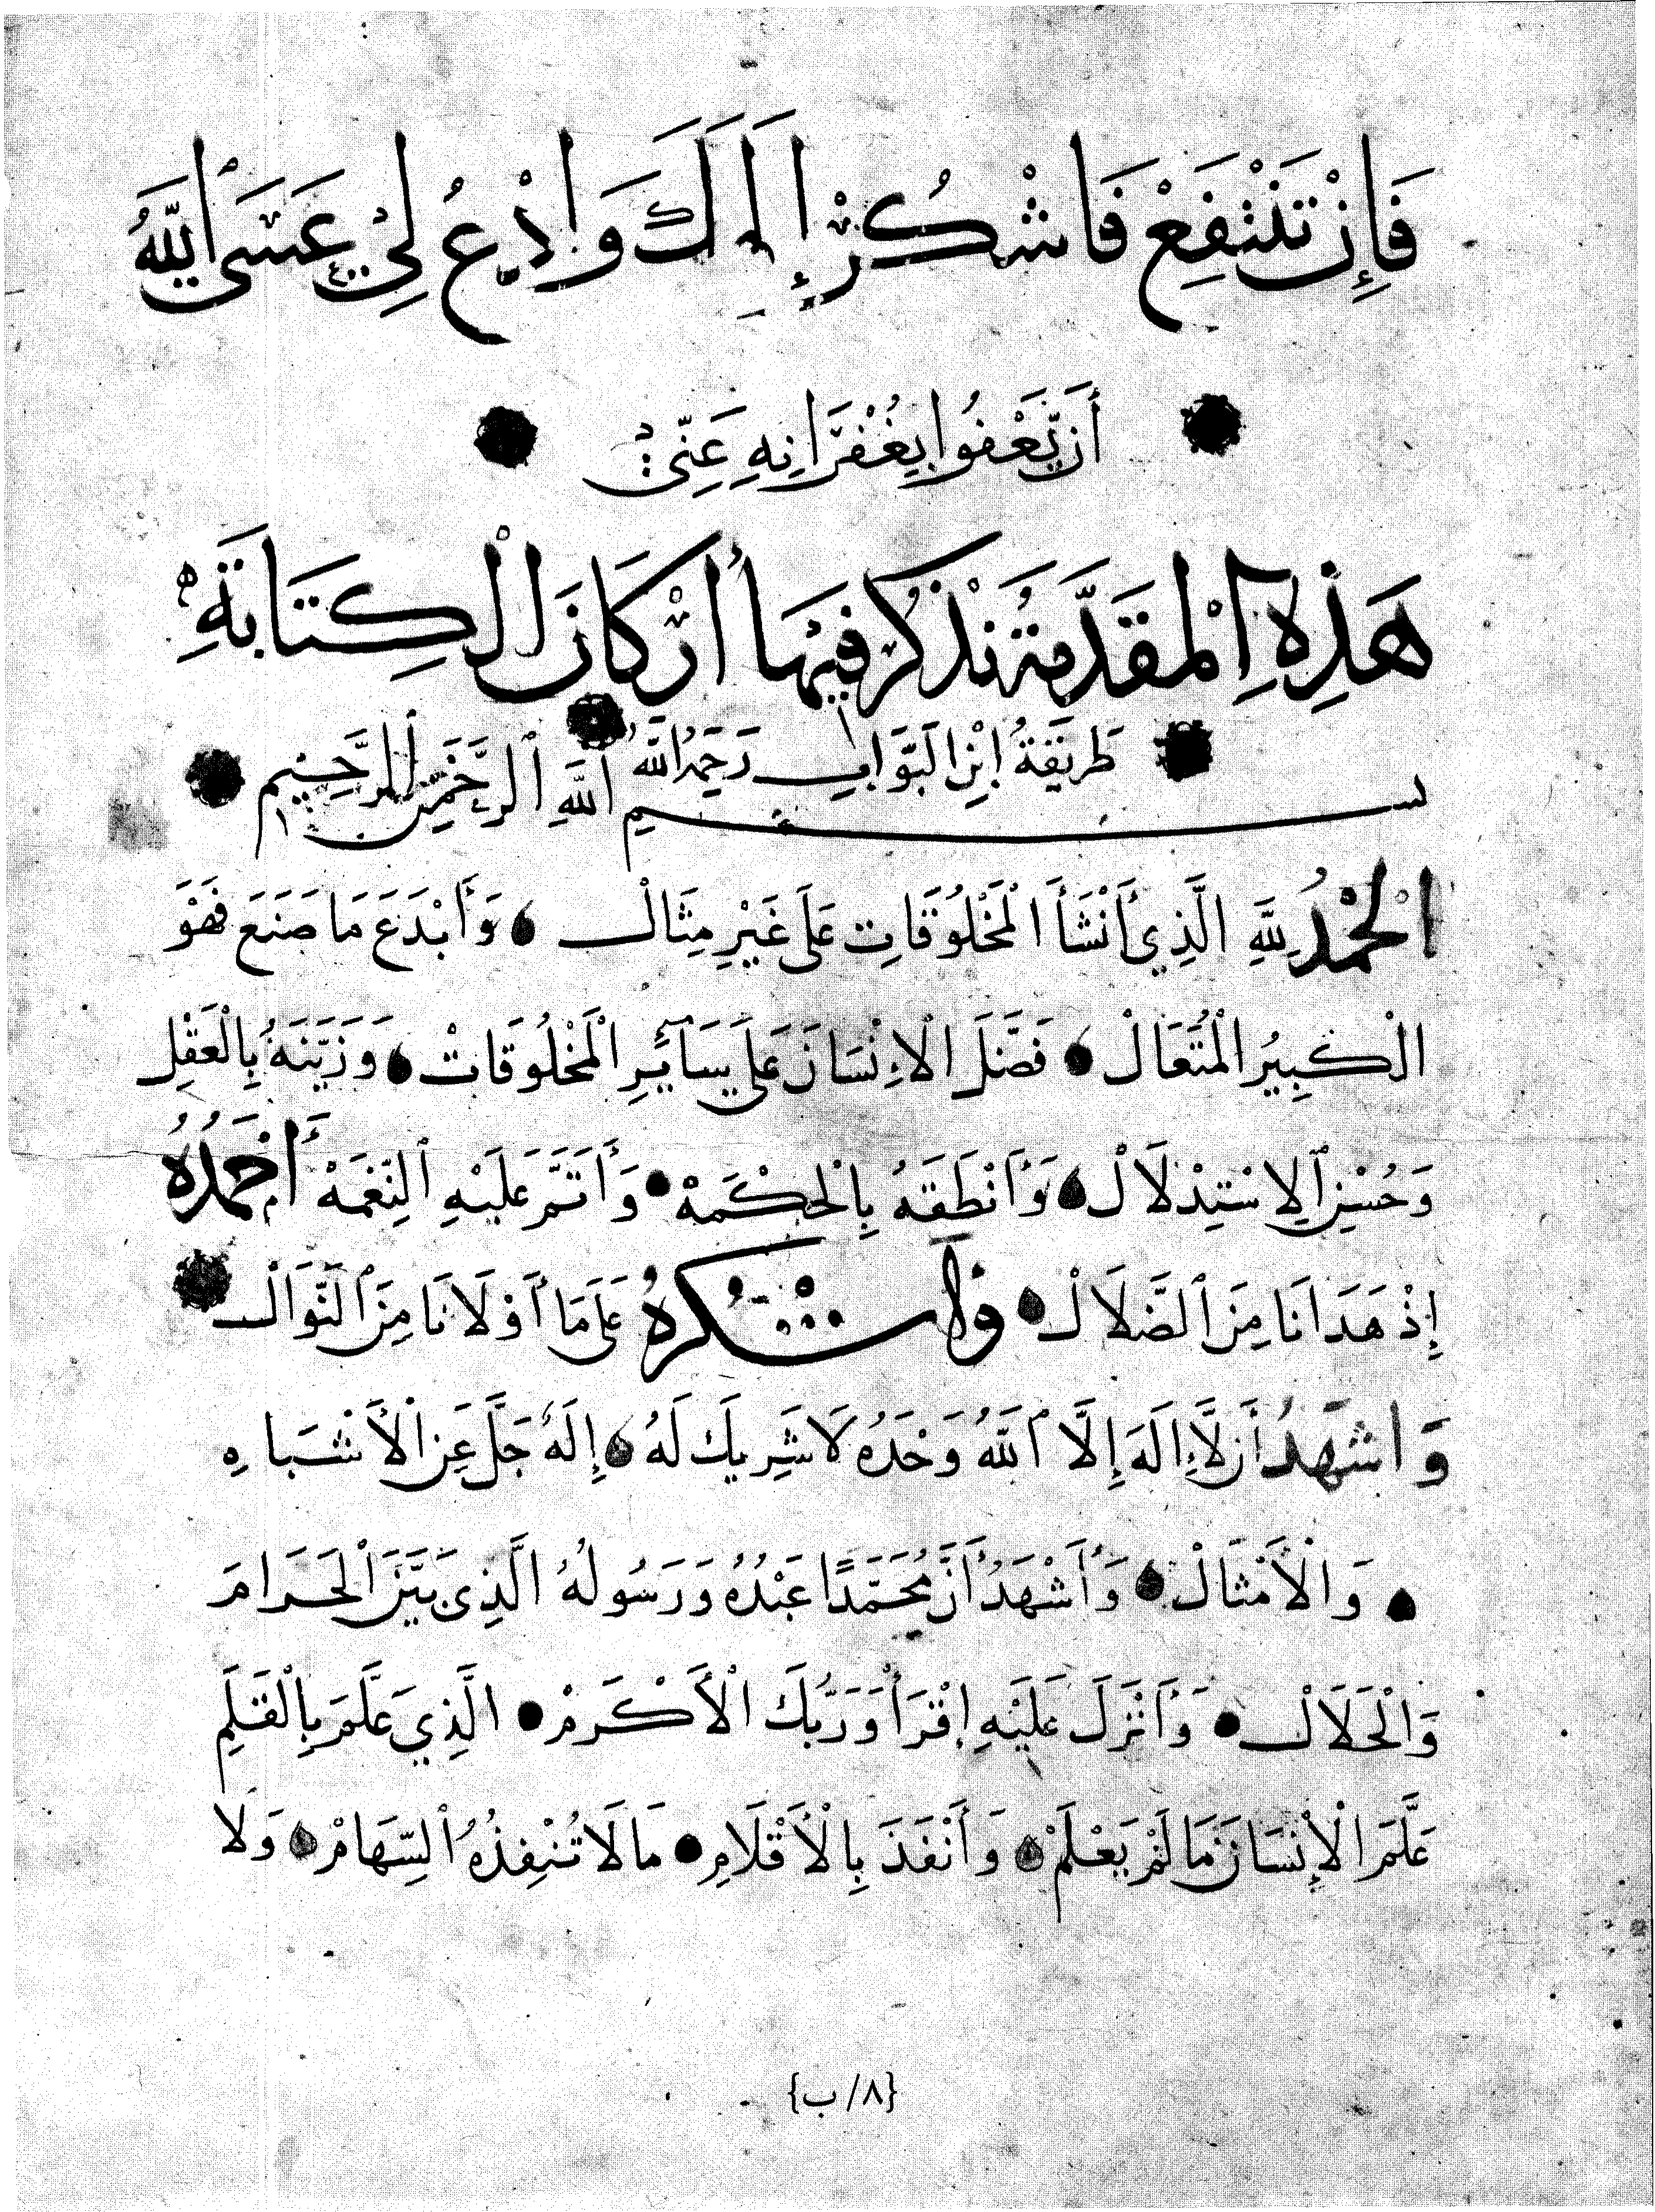 فَإِنْ تَنْتَفِعْ فَاشْكُرْ إِلَهَكَ وَادْعُ لِيْ عَسَى اللَّهُ
أَنْ يَعْفُوا بِغُفْرَانِهِ عَنِّيْ
هَذِهِ الْمُقَدِّمَةُ نَذْكُرُ فِيْهَا أَرْكَانَ الْكِتَابَةِ
طَرِيْقَةُ ابْنِ الْبَوَّابِ رَحِمَهُ اللَّهُ
بِسْمِ اللَّهِ الرَّحْمَنِ الرَّحِيْمِ
الْحَمْدُ لِلَّهِ الَّذِي أَنْشَأَ الْمَخْلُوقَاتِ عَلَى غَيْرِ مِثَالْ وَأَبْدَعَ مَا صَنَعَ فَهْوَ
الْكَبِيرُ الْمُتَعَالْ فَضَّلَ الْإِنْسَانَ عَلَى سَائِرِ الْمَخْلُوقَاتْ وَزَيَّنَهُ بِالْعَقْلِ
وَحُسْنِ الِاسْتِدْلَالْ وَأَنْطَقَهُ بِالْحِكْمَهْ وَأَتَمَّ عَلَيْهِ النِّعْمَهْ أَحْمَدُهُ
إِذْ هَدَانَا مِنَ الضَّلَالْ وَأَشْكُرُهُ عَلَى مَا أَوْلَانَا مِنَ النَّوَالْ
وَأَشْهَدُ أَنْ لَا إِلَهَ إِلَّا اللَّهُ وَحْدَهُ لَا شَرِيكَ لَهُ إِلَهٌ جَلَّ عَنِ الْأَشْبَاهِ
وَالْأَمْثَالْ وَأَشْهَدُ أَنَّ مُحَمَّدًا عَبْدُهُ وَرَسُولُهُ الَّذِي بَيَّنَ الْحَرَامَ
وَالْحَلَالْ وَأَنْزَلَ عَلَيْهِ إِقْرَأْ وَرَبُّكَ الْأَكْرَمْ الَّذِي عَلَّمَ بِالْقَلَمِ
عَلَّمَ الْإِنْسَانَ مَا لَمْ يَعْلَمْ وَأَنْفَذَ بِالْأَقْلَامِ مَا لَا تُنْفِذُهُ السِّهَامْ وَلَا
{٨/ ب}